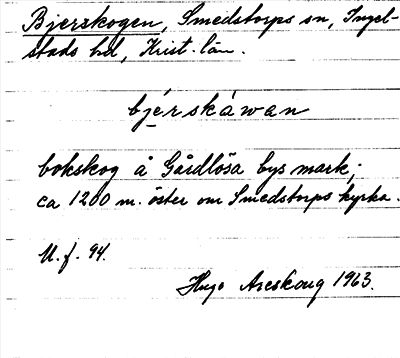 Bjerskogen, Smedstorps sn, Ingel-
stads hd, Krist. län.
bjérskáwan
bokskog å Gårdlösa bys mark;
ca 1200 m. öster om Smedstorps kyrka.
U. f. 94.
Hugo Areskoug 1963.